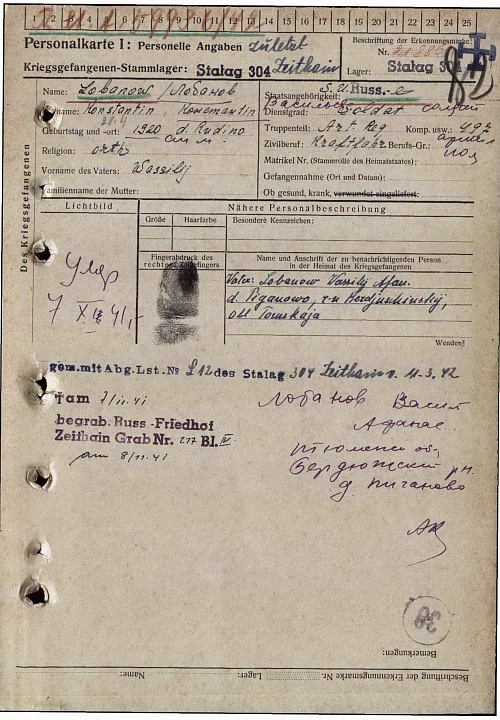 1 2 3 4 5 6 7 8 9 10 11 12 13 14 15 16 17 18 19 20 21 22 23 24 25
Personalkarte I: Personelle Angaben zuletzt
Kriegsgefangenen-Stammlager: Stalag 304 Zeithain
Beschriftung der Erkennungsmarke:
Nr.
Lager: Stalag 304
Des Kriegsgefangenen
Name: Lobanow / Лобанов
Vorname: Konstantin, Константин
Geburtstag und -ort: 1920 d. Kudino
Religion: orth
Vorname des Vaters: Wassilij
Familienname der Mutter:
Staatsangehörigkeit: S.U. Russ.-e
Dienstgrad: Soldat солдат
Truppenteil: Art. Reg Komp. usw.: 492
Zivilberuf: Kraftfahr Berufs-Gr.:
Matrikel Nr. (Stammrolle des Heimatstaates):
Gefangennahme (Ort und Datum):
Ob gesund, krank, verwundet eingeliefert:
Lichtbild
Nähere Personalbeschreibung
Größe Haarfarbe Besondere Kennzeichen:
Fingerabdruck des rechten Zeigefingers
Name und Anschrift der zu benachrichtigenden Person
in der Heimat des Kriegsgefangenen
Vater: Lobanow Vassilij Afan.
d. Piganowo, r-n Berdjuschinskij,
obl Tomskaja
Wenden!
Умер
7 XI 41,
gem. mit Abg. Lst. № L12 des Stalag 304 Zeithain v. 11.3.42
† am 7/11.41
begrab. Russ-Friedhof
Zeithain Grab Nr. 217 Bl. IV
am 8/11.41
Лобанов Васил
Афанас.
Тюменск об,
Бердюжский р-н
д. Пиганово
30
Bemerkungen:
Beschriftung der Erkennungsmarke Nr. Lager: Name: